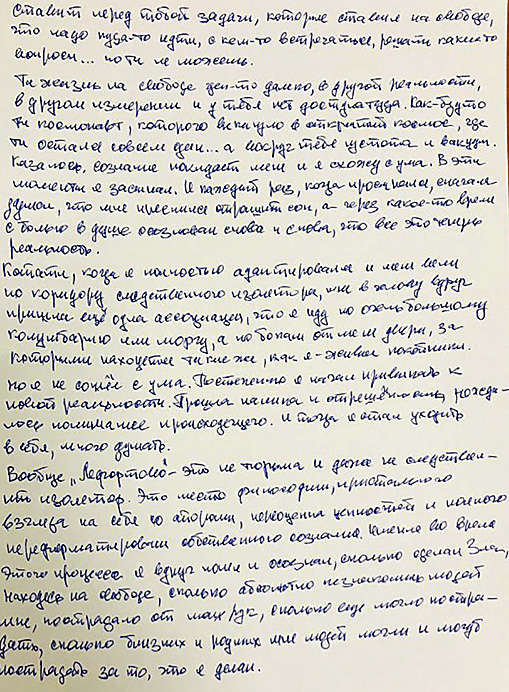 ставит перед тобой задачи, которые ставил на свободе,
что надо куда-то идти, с кем-то встречаться, решать какие-то
вопросы... но ты не можешь.
Та жизнь на свободе где-то далеко, в другой реальности,
в другом измерении и у тебя нет доступа туда. Как-будто
ты космонавт, которого выкинуло в открытый космос, где
ты остался совсем один... а вокруг тебя пустота и вакуум.
Казалось, сознание покидает меня и я схожу с ума. В эти
моменты я засыпал. И каждый раз, когда просыпался, сначала
думал, что мне приснился страшный сон, а через какое-то время
с болью в душе осознавал снова и снова, что все это теперь
реальность.
Кстати, когда я полностью адаптировался и меня вели
по коридору следственного изолятора, мне в голову вдруг
пришла ещё одна ассоциация, что я иду по очень большому
колумбарию или моргу, а по бокам от меня двери, за
которыми находятся такие же, как я - живые покойники.
Но я не сошёл с ума. Постепенно я начал привыкать к
новой реальности. Прошла паника и отрешённость, рожда-
лось понимание происходящего. И тогда я стал уходить
в себя, много думать.
Вообще „Лефортово" - это не тюрьма и даже не следствен-
ный изолятор. Это место философии, пристального
взгляда на себя со стороны, переоценки ценностей и полного
переформатирования собственного сознания. Именно во время
этого процесса я вдруг понял и осознал, сколько сделал Зла,
находясь на свободе, сколько абсолютно незнакомых людей
мне, пострадало от моих рук, сколько еще могло постра-
дать, сколько близких и родных мне людей могли и могут
пострадать за то, что я делал.